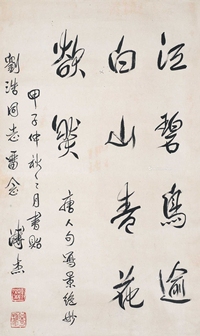 江碧鳥逾
白山青花
欲然
唐人句寫景絕妙
甲子仲秋之月書貽
劉浩同志留念
溥杰